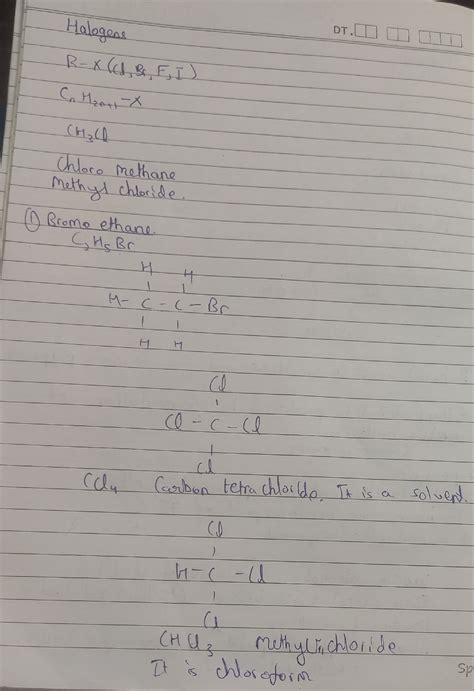 Halogens
DT.
R-X (Cl, Br, F, I)
CnH2n+1-X
CH3Cl
Chloro methane
Methyl chloride.
① Bromo ethane.
C2H5Br
H H
H- C - C - Br
H H
Cl
Cl - C - Cl
Cl
CCl4 Carbon tetrachloride. It is a solvent.
Cl
H - C - Cl
Cl
CHCl3 chloride
It is chloroform
Sp